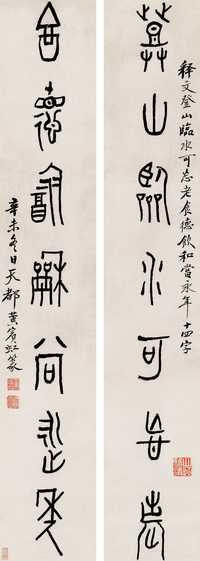 释文登山臨水可忘老食德飲和當永年十四字
登山臨水可忘老
食德飲龢尚永年
辛未冬日天都黃賓虹篆